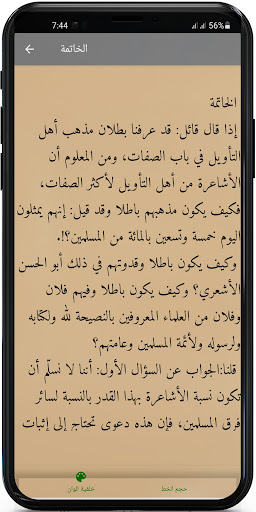 7:44
56%
الخاتمة
الخاتمة
إذا قال قائل: قد عرفنا بطلان مذهب أهل
التأويل في باب الصفات، ومن المعلوم أن
الأشاعرة من أهل التأويل لأكثر الصفات،
فكيف يكون مذهبهم باطلا وقد قيل: إنهم يمثلون
اليوم خمسة وتسعين بالمائة من المسلمين؟!.
وكيف يكون باطلا وقدوتهم في ذلك أبو الحسن
الأشعري؟ وكيف يكون باطلا وفيهم فلان
وفلان من العلماء المعروفين بالنصيحة لله ولكتابه
ولرسوله ولأئمة المسلمين وعامتهم؟
قلنا:الجواب عن السؤال الأول: أننا لا نسلّم أن
تكون نسبة الأشاعرة بهذا القدر بالنسبة لسائر
فرق المسلمين، فإن هذه دعوى تحتاج إلى إثبات
حجم الخط
خلفية الوان